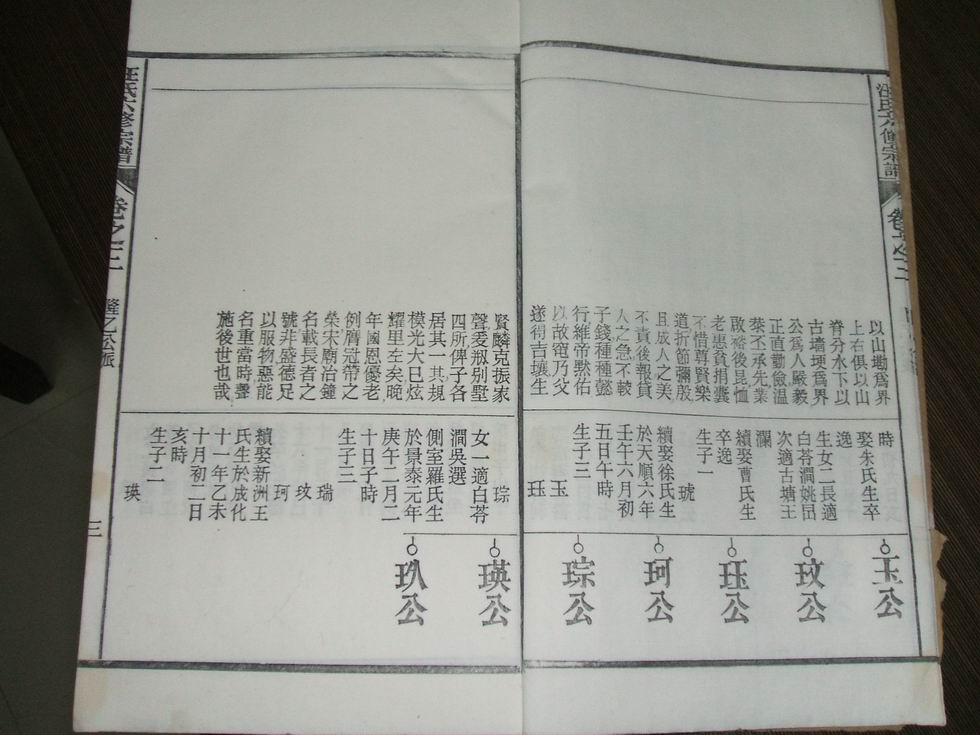 汪氏六修宗譜
卷之二
以山坳爲界
上右俱以山
脊分水下以
古墻埂爲界
公爲人嚴毅
正直勤儉溫
恭丕承先業
啟裕後昆恤
老惠貧捐囊
不惜尊賢樂
道折節彌殷
且成人之美
不責後報貸
人之急不較
子錢種種懿
行維帝默佑
以故竜乃父
遂得吉壤生
時
娶朱氏生卒
逸
生女二長適
白荅澗姚昂
次適古塘王
瀾
續娶曹氏生
卒逸
生子一
琥
續娶徐氏生
於天順六年
壬午六月初
五日午時
生子三
玉
珏
玉公
玟公
珏公
珂公
琮公
賢麟克振家
聲爰剏别墅
四所俾子各
居其一其規
模光大已炫
耀里左矣晚
年國恩優老
例膺冠帶之
榮宋廟冶鐘
名載長者之
號非盛德足
以服物惡能
名重當時聲
施後世也哉
琮
女一適白荅
澗吳選
側室羅氏生
於景泰元年
庚午二月二
十日子時
生子三
瑞
玟
珂
續娶新洲王
氏生於成化
十一年乙未
十月初二日
亥時
生子二
瑛
瑛公
玐公
汪氏六修宗譜
卷之二
隆乙公派
三